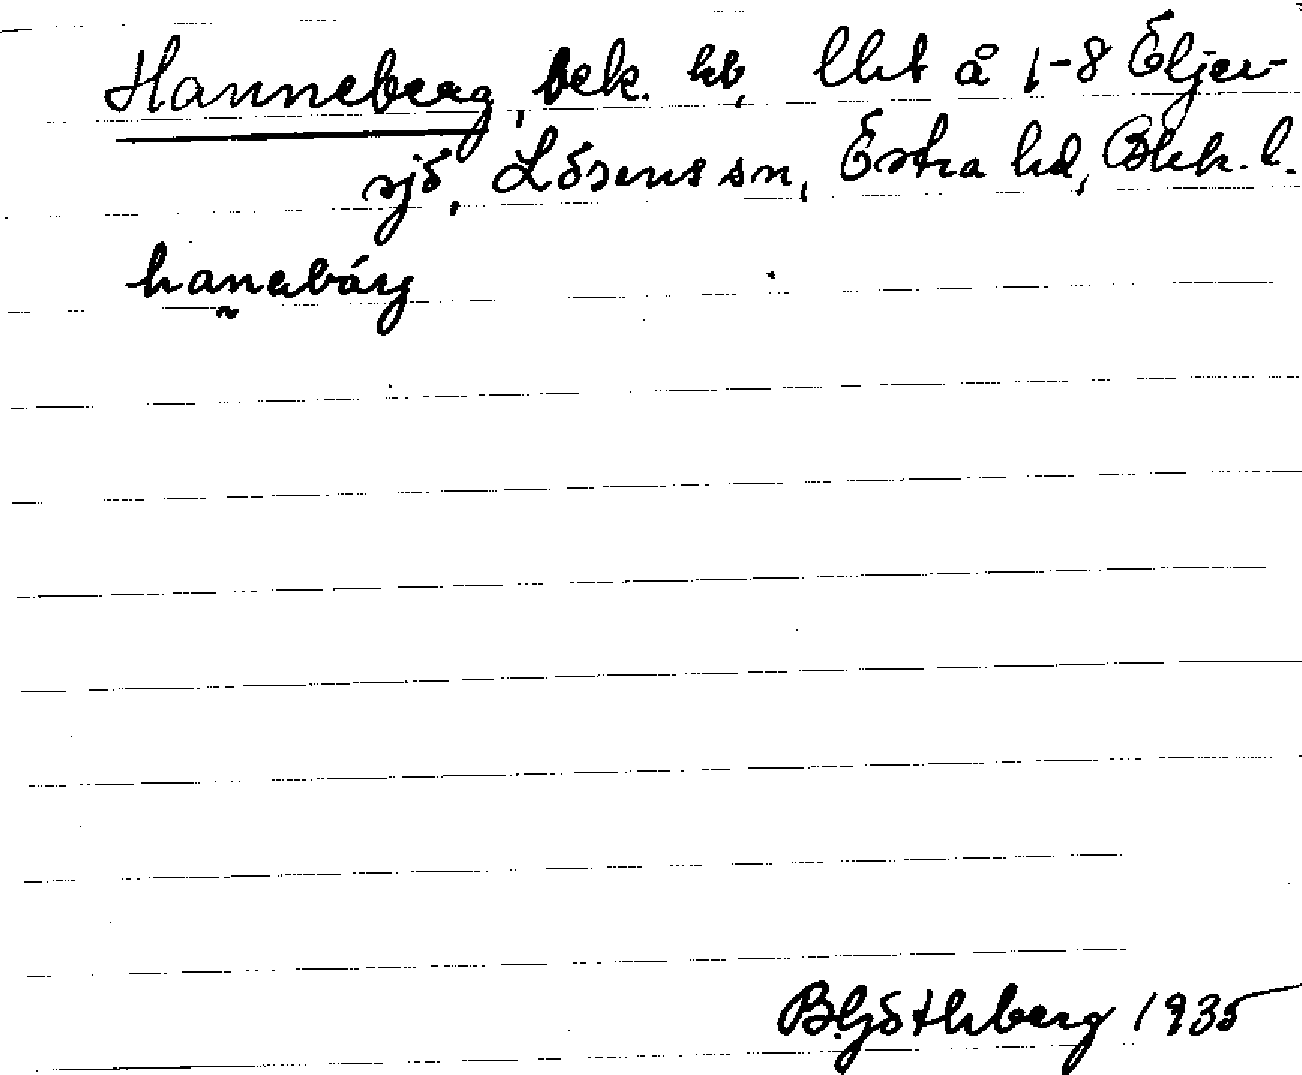 Hanneberg, bek. kb, lht å 1-8 Öljer-
sjö, Lösens sn, Östra hd, Blek. l.
hanebärg
B. Göthberg 1935